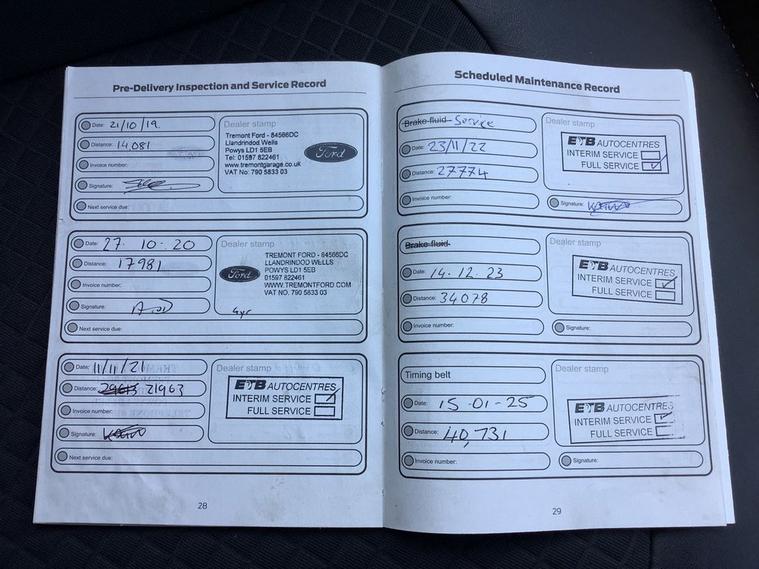 Pre-Delivery Inspection and Service Record
Date: 21/10/19.
Distance: 14,081
Invoice number:
Signature:
Next service due:
Dealer stamp
Tremont Ford - 84566DC
Llandrindod Wells
Powys LD1 5EB
Tel: 01597 822461
www.tremontgarage.co.uk
VAT No: 790 5833 03
Ford
Date: 27. 10. 20
Distance: 17981
Invoice number:
Signature:
Next service due:
Dealer stamp
Ford
TREMONT FORD - 84566DC
LLANDRINDOD WELLS
POWYS LD1 5EB
01597 822461
WWW.TREMONTFORD.COM
VAT NO. 790 5833 03
4yr
Date: 11/11/21
Distance: 21963
Invoice number:
Signature:
Next service due:
Dealer stamp
ETB AUTOCENTRES
INTERIM SERVICE
FULL SERVICE
28
Scheduled Maintenance Record
Brake fluid Service
Date: 23/11/22
Distance: 27774
Invoice number:
Dealer stamp
ETB AUTOCENTRES
INTERIM SERVICE
FULL SERVICE
Signature:
Brake fluid
Date: 14.12.23
Distance: 34078
Invoice number:
Dealer stamp
ETB AUTOCENTRES
INTERIM SERVICE
FULL SERVICE
Signature:
Timing belt
Date: 15-01-25
Distance: 40,731
Invoice number:
Dealer stamp
ETB AUTOCENTRES
INTERIM SERVICE
FULL SERVICE
Signature:
29